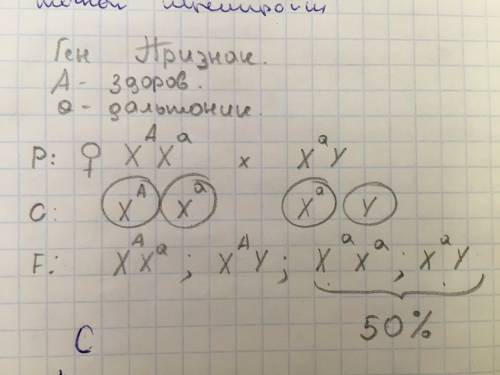 Ген Признак.
A - здоров.
a - дальтоник.
P: ♀ X^A X^a x X^a Y
C: X^A X^a X^a Y
F: X^A X^a ; X^A Y ; X^a X^a ; X^a Y
50%
C